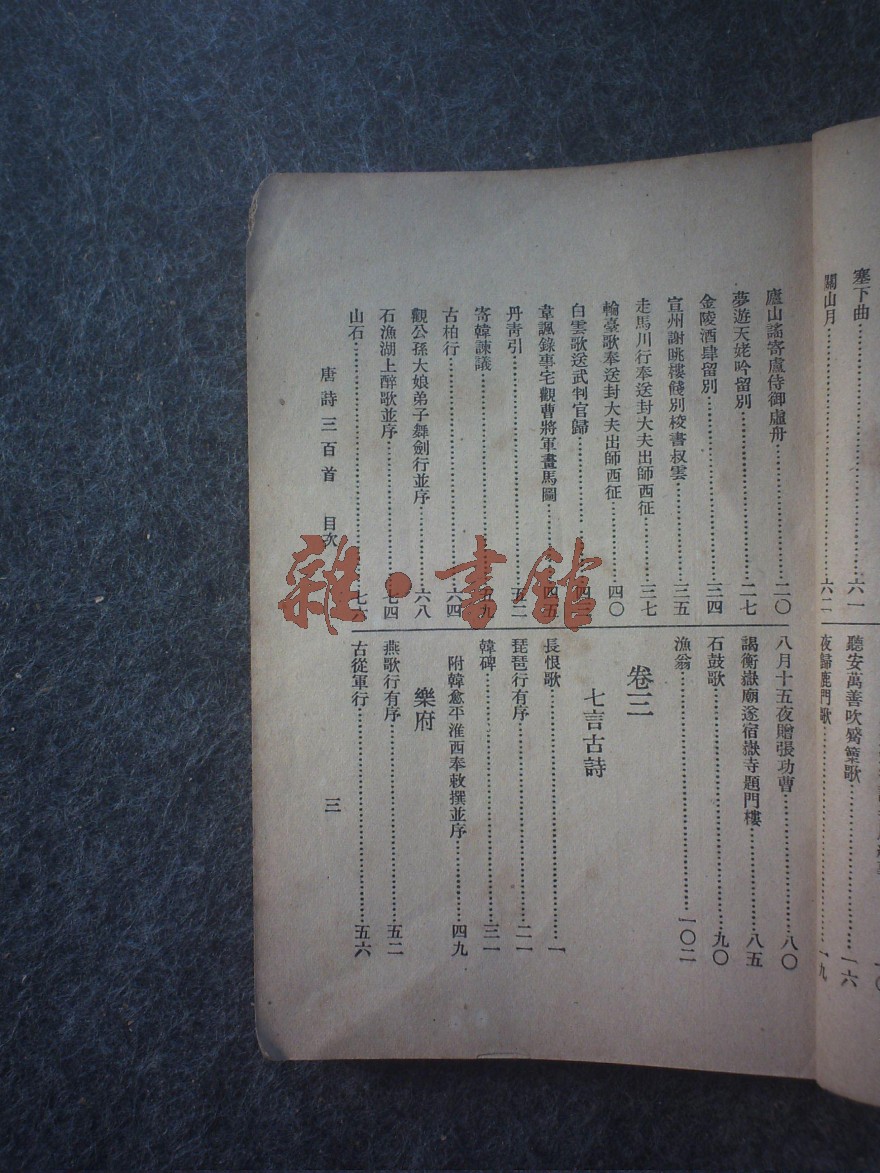 塞下曲……六一
關山月……六二
聽安萬善吹觱篥歌……一六
夜歸鹿門歌……一九
廬山謠寄盧侍御虛舟……二〇
夢遊天姥吟留別……二七
金陵酒肆留別……三四
宣州謝朓樓餞別校書叔雲……三五
走馬川行奉送封大夫出師西征……三七
輪臺歌奉送封大夫出師西征……四〇
白雲歌送武判官歸……四
韋諷錄事宅觀曹將軍畫馬圖……四五
丹靑引……五二
寄韓諫議……五九
古柏行……六四
觀公孫大娘弟子舞劍行並序……六八
石漁湖上醉歌並序……七四
山石……七六
八月十五夜贈張功曹……八〇
謁衡嶽廟遂宿嶽寺題門樓……八五
石鼓歌……九〇
漁翁……一〇二
卷三
七言古詩
長恨歌……一
琵琶行有序……二一
韓碑……三一
附韓愈平淮西奉敕撰並序……四九
樂府
燕歌行有序……五二
古從軍行……五六
唐詩三百首 目次
三
雜·書館